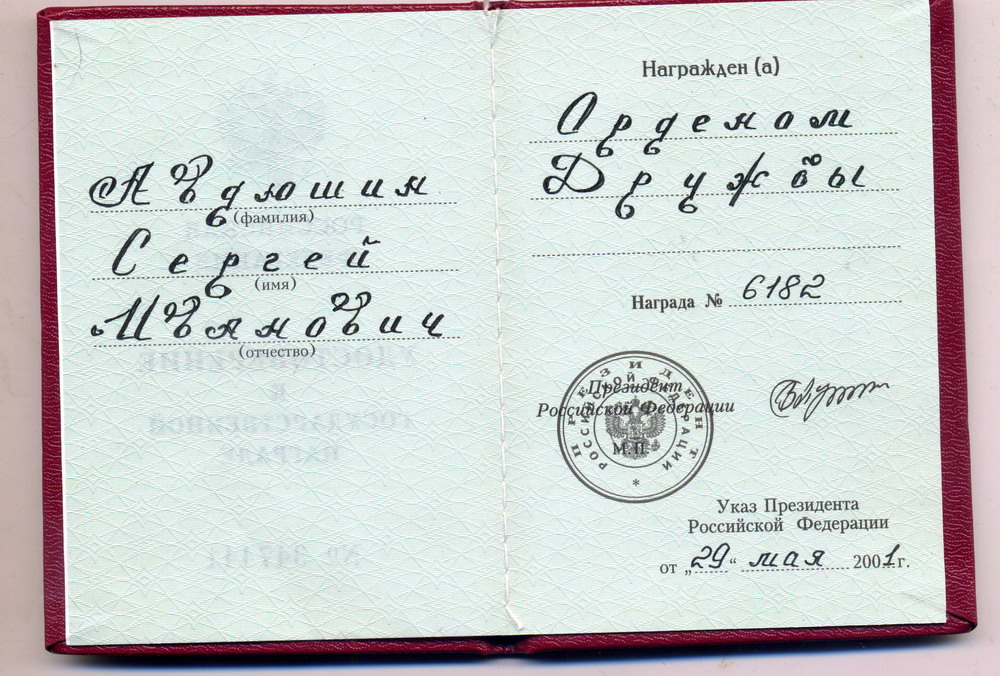 Авдюшин
(фамилия)
Сергей
(имя)
Иванович
(отчество)
Награжден (а)
Орденом
Дружбы
Награда № 6182
ПРЕЗИДЕНТ
РОССИЙСКОЙ ФЕДЕРАЦИИ
*
Президент
Российской Федерации
М.П.
Указ Президента
Российской Федерации
от „29“ мая 2001 г.